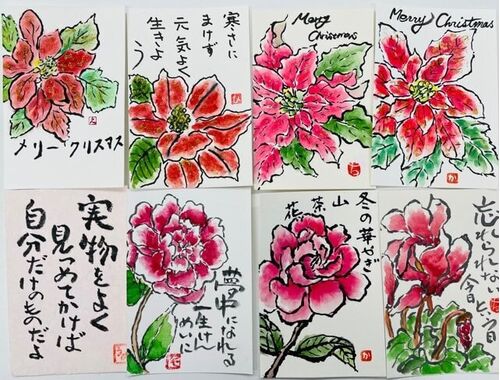 メリークリスマス
寒さに
まけず
元気よく
生きよう
Merry
Christmas
Merry Christmas
実物をよく
見つめてかけば
自分だけのものだよ
夢中になれる
一生けん
めいに
冬の華やぎ
山
茶
花
忘れられない
今日という日